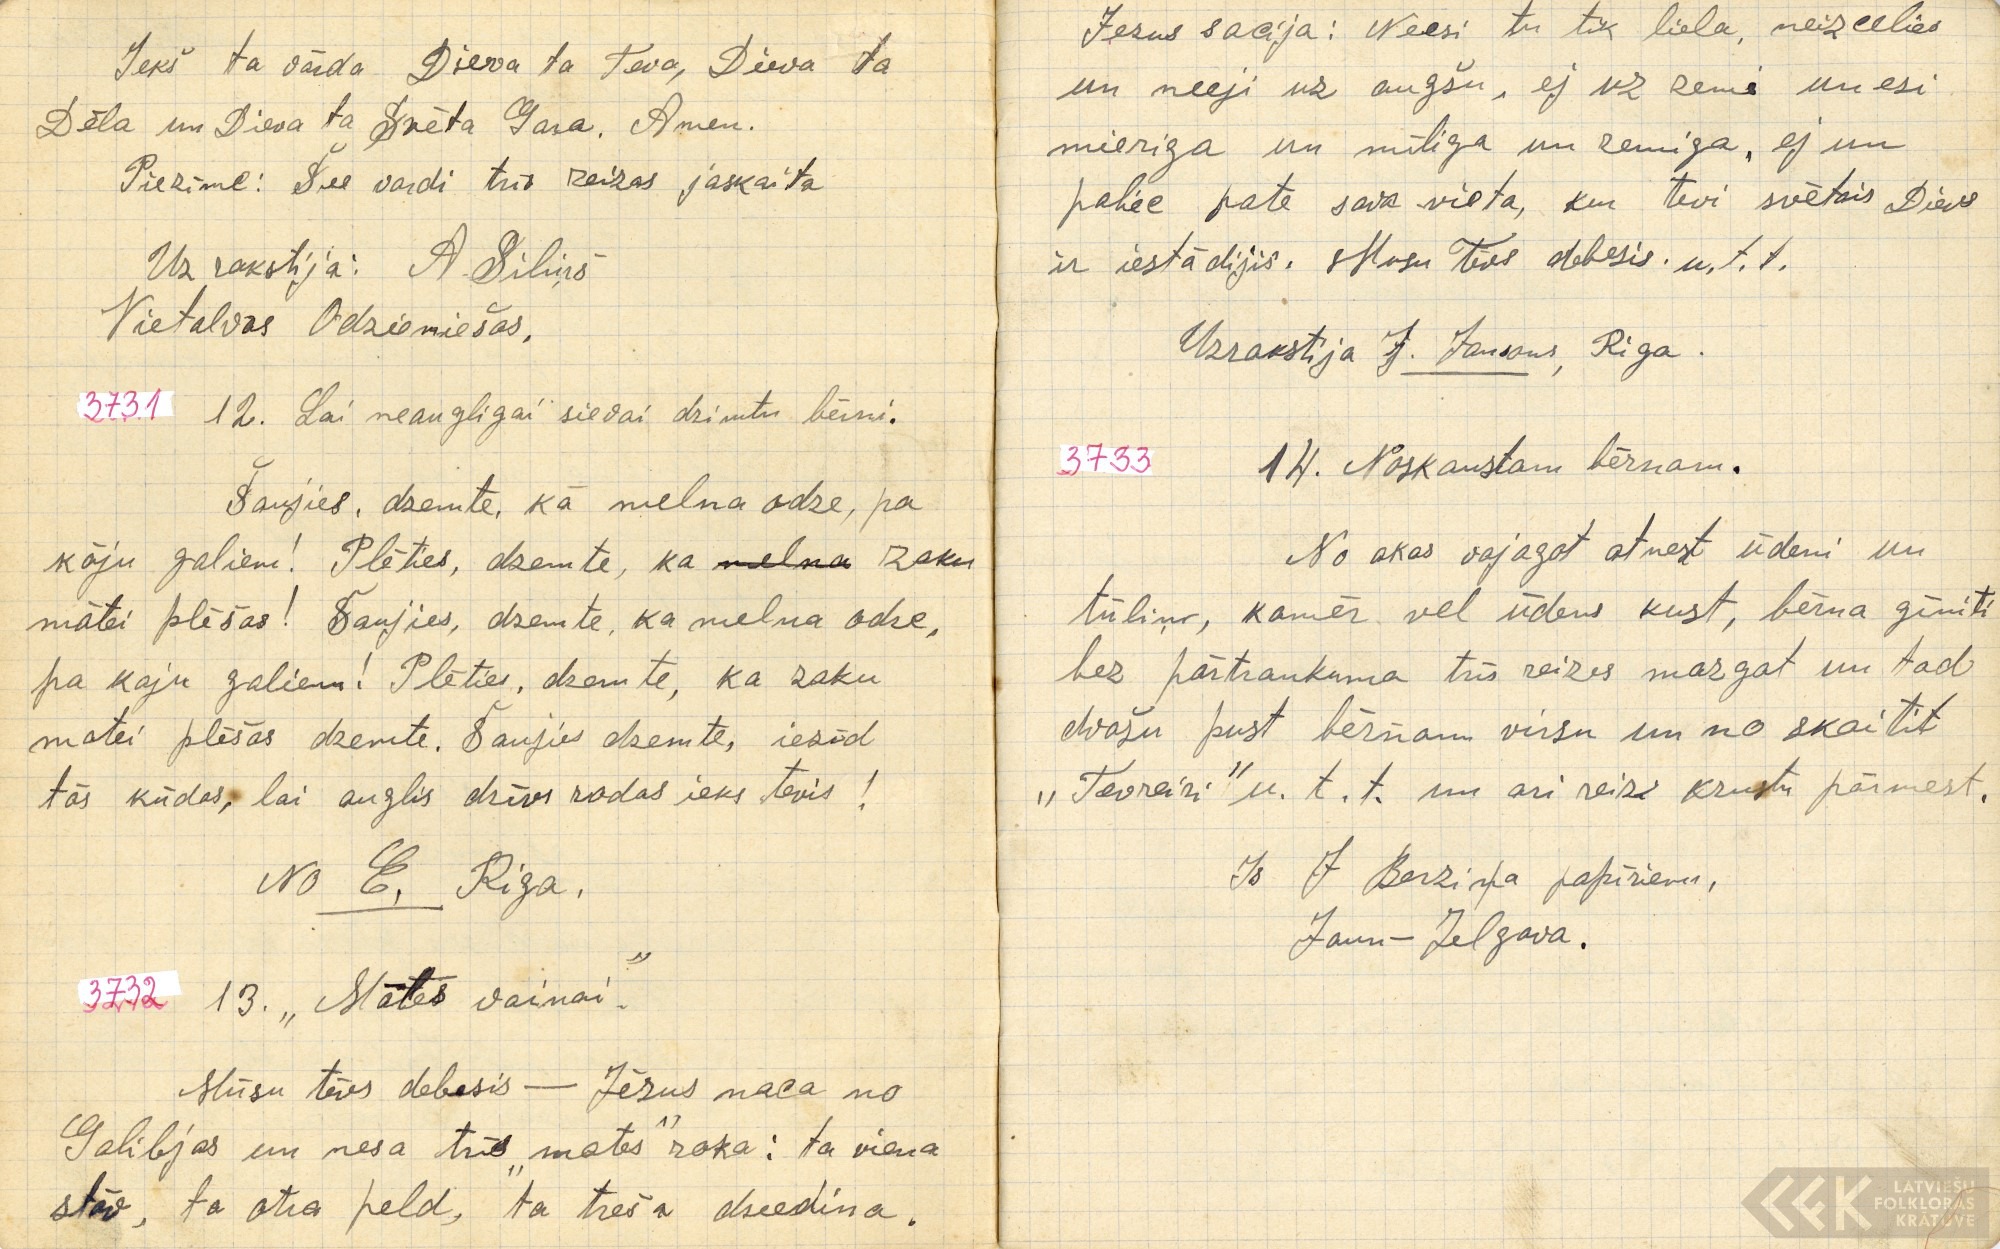 Iekš ta vārda Dieva ta Teva, Dieva ta
Dēla un Dieva ta Svēta Gara. Amen.
Piezīme: Šee vardi trīs reizas jaskaita
Uzrakstija: A Siliņš
Vietalvas Odzieniešas.
3731 12. Lai neaugligai sievai dzimtu bērni.
Šaujies, dzemte, kā melna odze, pa
kāju galiem! Plēties, dzemte, ka melna zaku
mātei plēšas! Šaujies, dzemte, ka melna odze,
pa kaju galiem! Plēties, dzemte, ka zaku
matei plēšas dzemte. Šaujies dzemte, iezūd
tās kūdas, lai auglis dzīvs rodas ieks tevis!
No E. Riga.
3732 13. „Mātes vainai".
Mūsu tēvs debesis — Jēzus naca no
Galilejas un nesa trīs „mates" roka: ta viena
stāv, ta otra peld, ta treša dzeedina.
Jezus sacija: Neesi tu tik liela, neizcelies
un neeji uz augšu, ej uz zemi un esi
mieriga un mīliga un zemiga, ej un
paliec pate sava vieta, kur tevi svētais Dievs
ir iestādijis. Musu Tēvs debesis. u. t. t.
Uzrakstija J. Jansons, Riga.
3733 14. Noskaustam bērnam.
No akas vajagot atnest ūdeni un
tūliņ, kamēr vel ūdens kust, bērna ģīmiti
bez pārtraukuma trīs reizes mazgat un tad
dvašu pust bērnam virsu un no skaitit
„Tevreizi" u. t. t. un ari reizi krustu pārmest.
Is J Berziņa papīriem,
Jaun-Jelgava.
LATVIEŠU
FOLKLORAS
KRĀTUVE